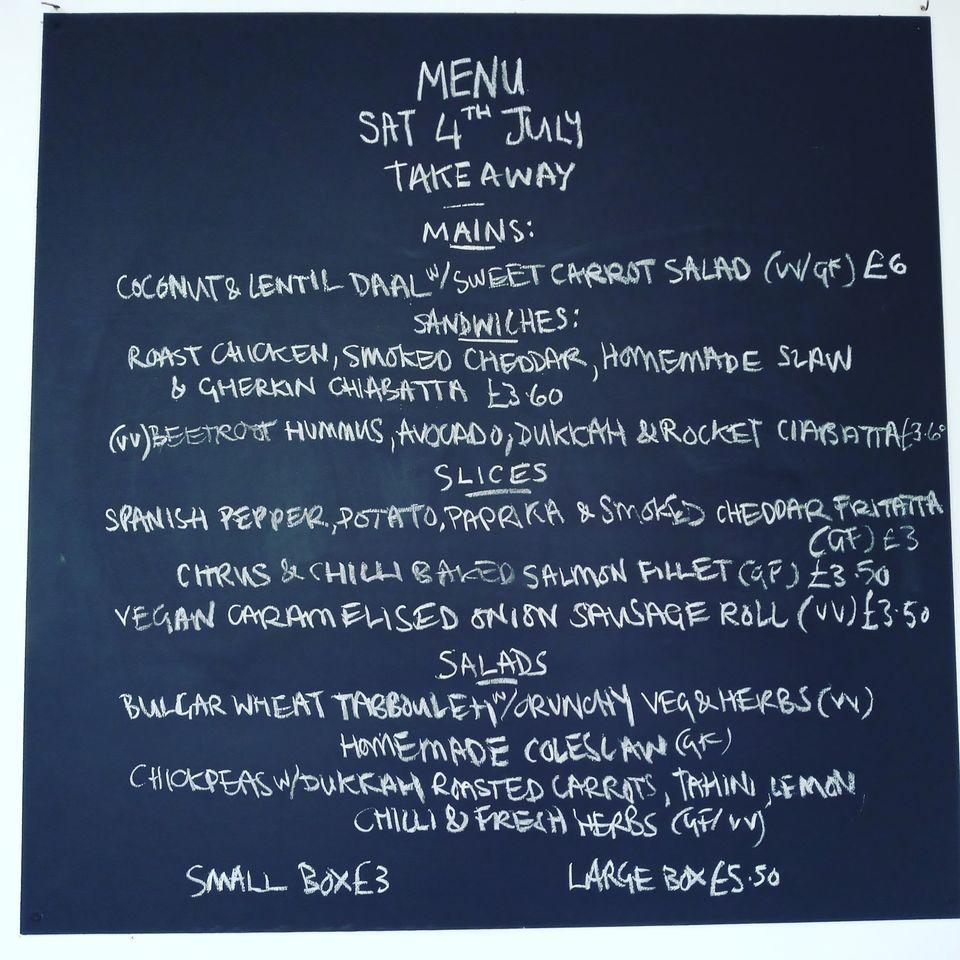 MENU
SAT 4TH JULY
TAKEAWAY
MAINS:
COCONUT & LENTIL DAAL W/ SWEET CARROT SALAD (VV/GF) £6
SANDWICHES:
ROAST CHICKEN, SMOKED CHEDDAR, HOMEMADE SLAW
& GHERKIN CHIABATTA £3.60
(VV) BEETROOT HUMMUS, AVOCADO, DUKKAH & ROCKET CIABATTA £3.60
SLICES
SPANISH PEPPER, POTATO, PAPRIKA & SMOKED CHEDDAR FRITATTA
(GF) £3
CITRUS & CHILLI BAKED SALMON FILLET (GF) £3.50
VEGAN CARAMELISED ONION SAUSAGE ROLL (VV) £3.50
SALADS
BULGAR WHEAT TABBOULEH W/ CRUNCHY VEG & HERBS (VV)
HOMEMADE COLESLAW (GF)
CHICKPEAS W/ DUKKAH ROASTED CARROTS, TAHINI, LEMON
CHILLI & FRESH HERBS (GF/VV)
SMALL BOX £3 LARGE BOX £5.50